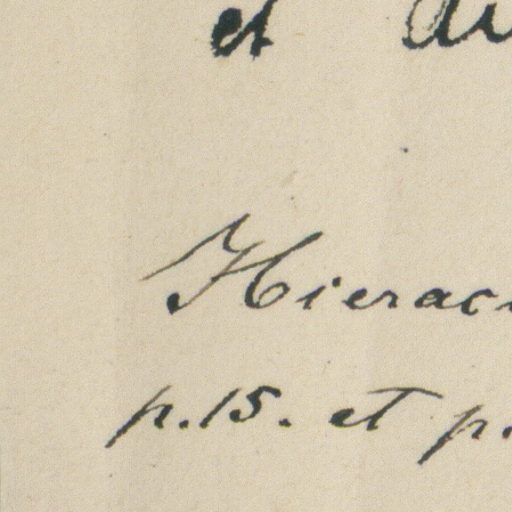 et
Hierac
p. 15. et p.